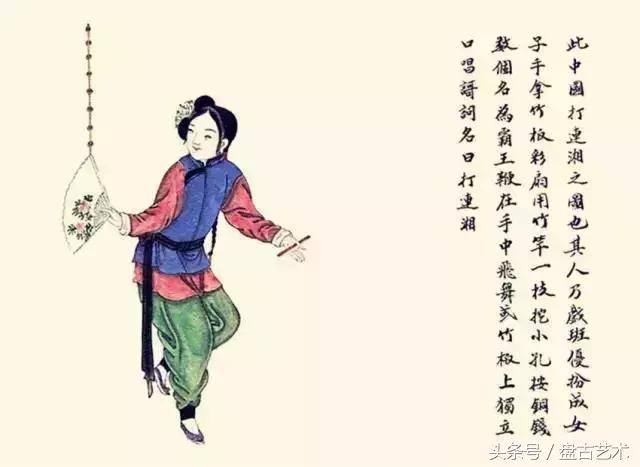 此中國打連湘之圖也其人乃戲班優扮成女
子手拿竹板彩扇用竹竿一枝挖小孔按銅錢
数個名為霸王鞭在手中飛舞或竹板上獨立
口唱謌詞名曰打連湘
头条号 / 盘古艺术